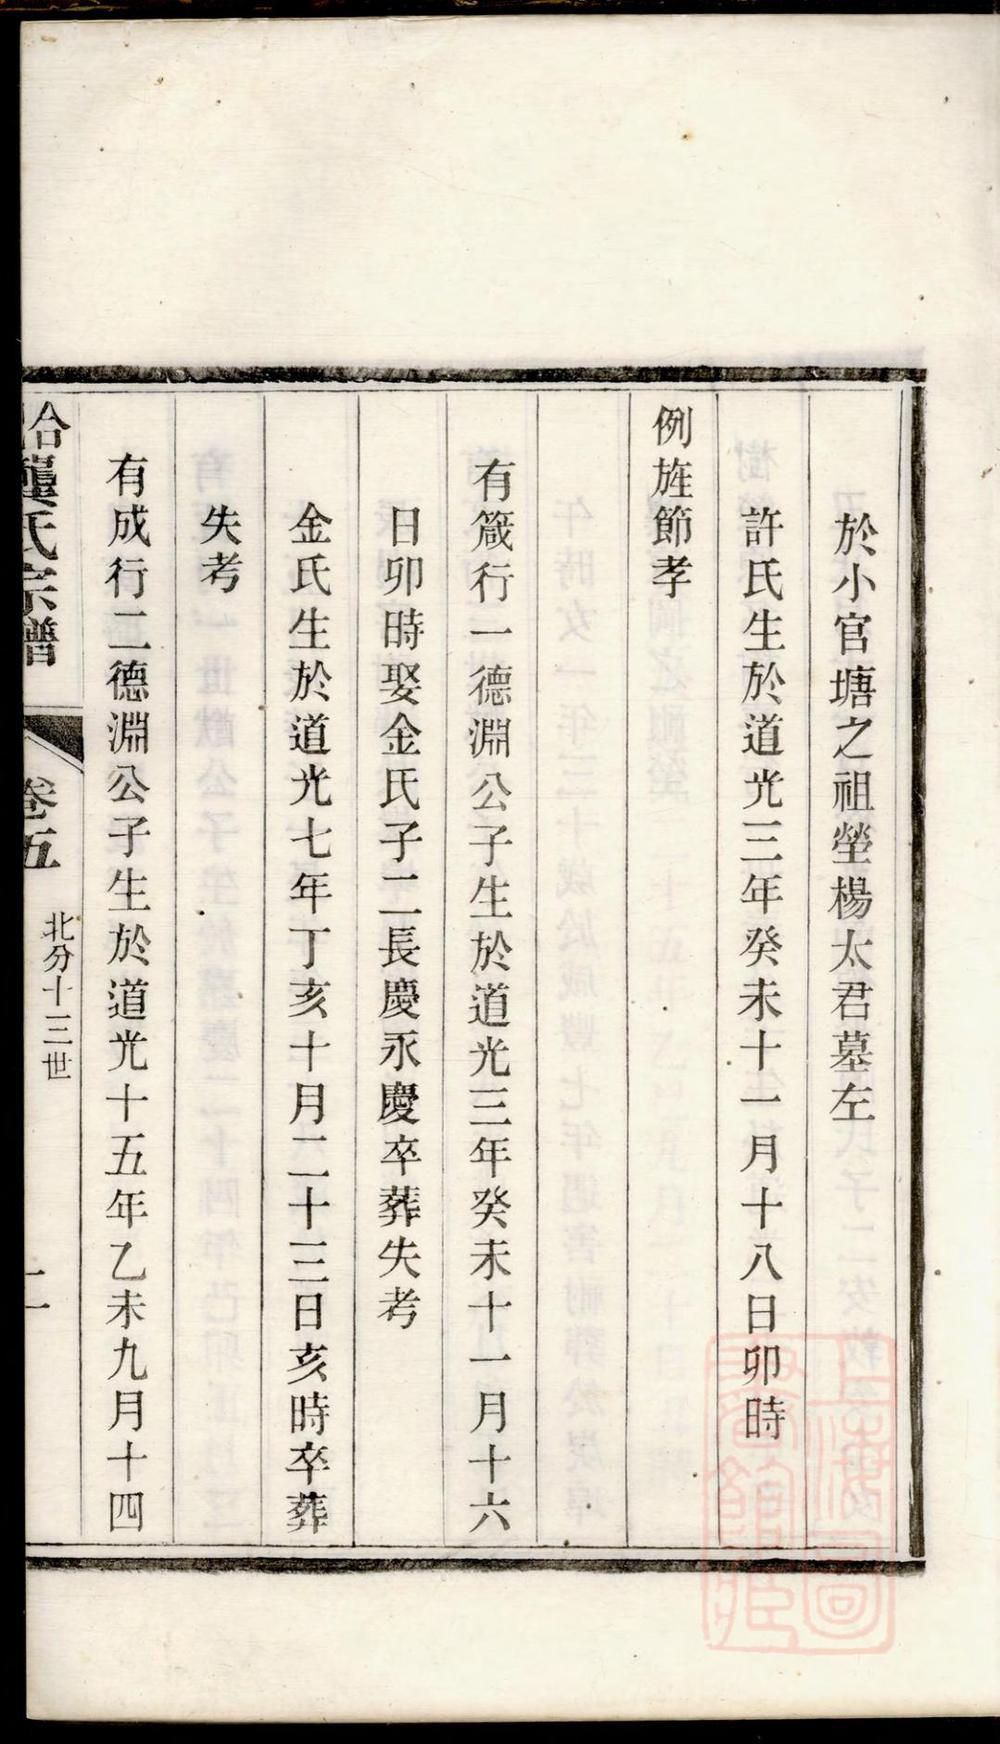 於小官塘之祖塋楊太君墓左
許氏生於道光三年癸未十一月十八日卯時
例旌節孝
有箴行一德淵公子生於道光三年癸未十一月十六
日卯時娶金氏子二長慶永慶卒葬失考
金氏生於道光七年丁亥十月二十三日亥時卒葬
失考
有成行二德淵公子生於道光十五年乙未九月十四
龔氏宗譜
卷五
北分十三世
上海圖書館藏